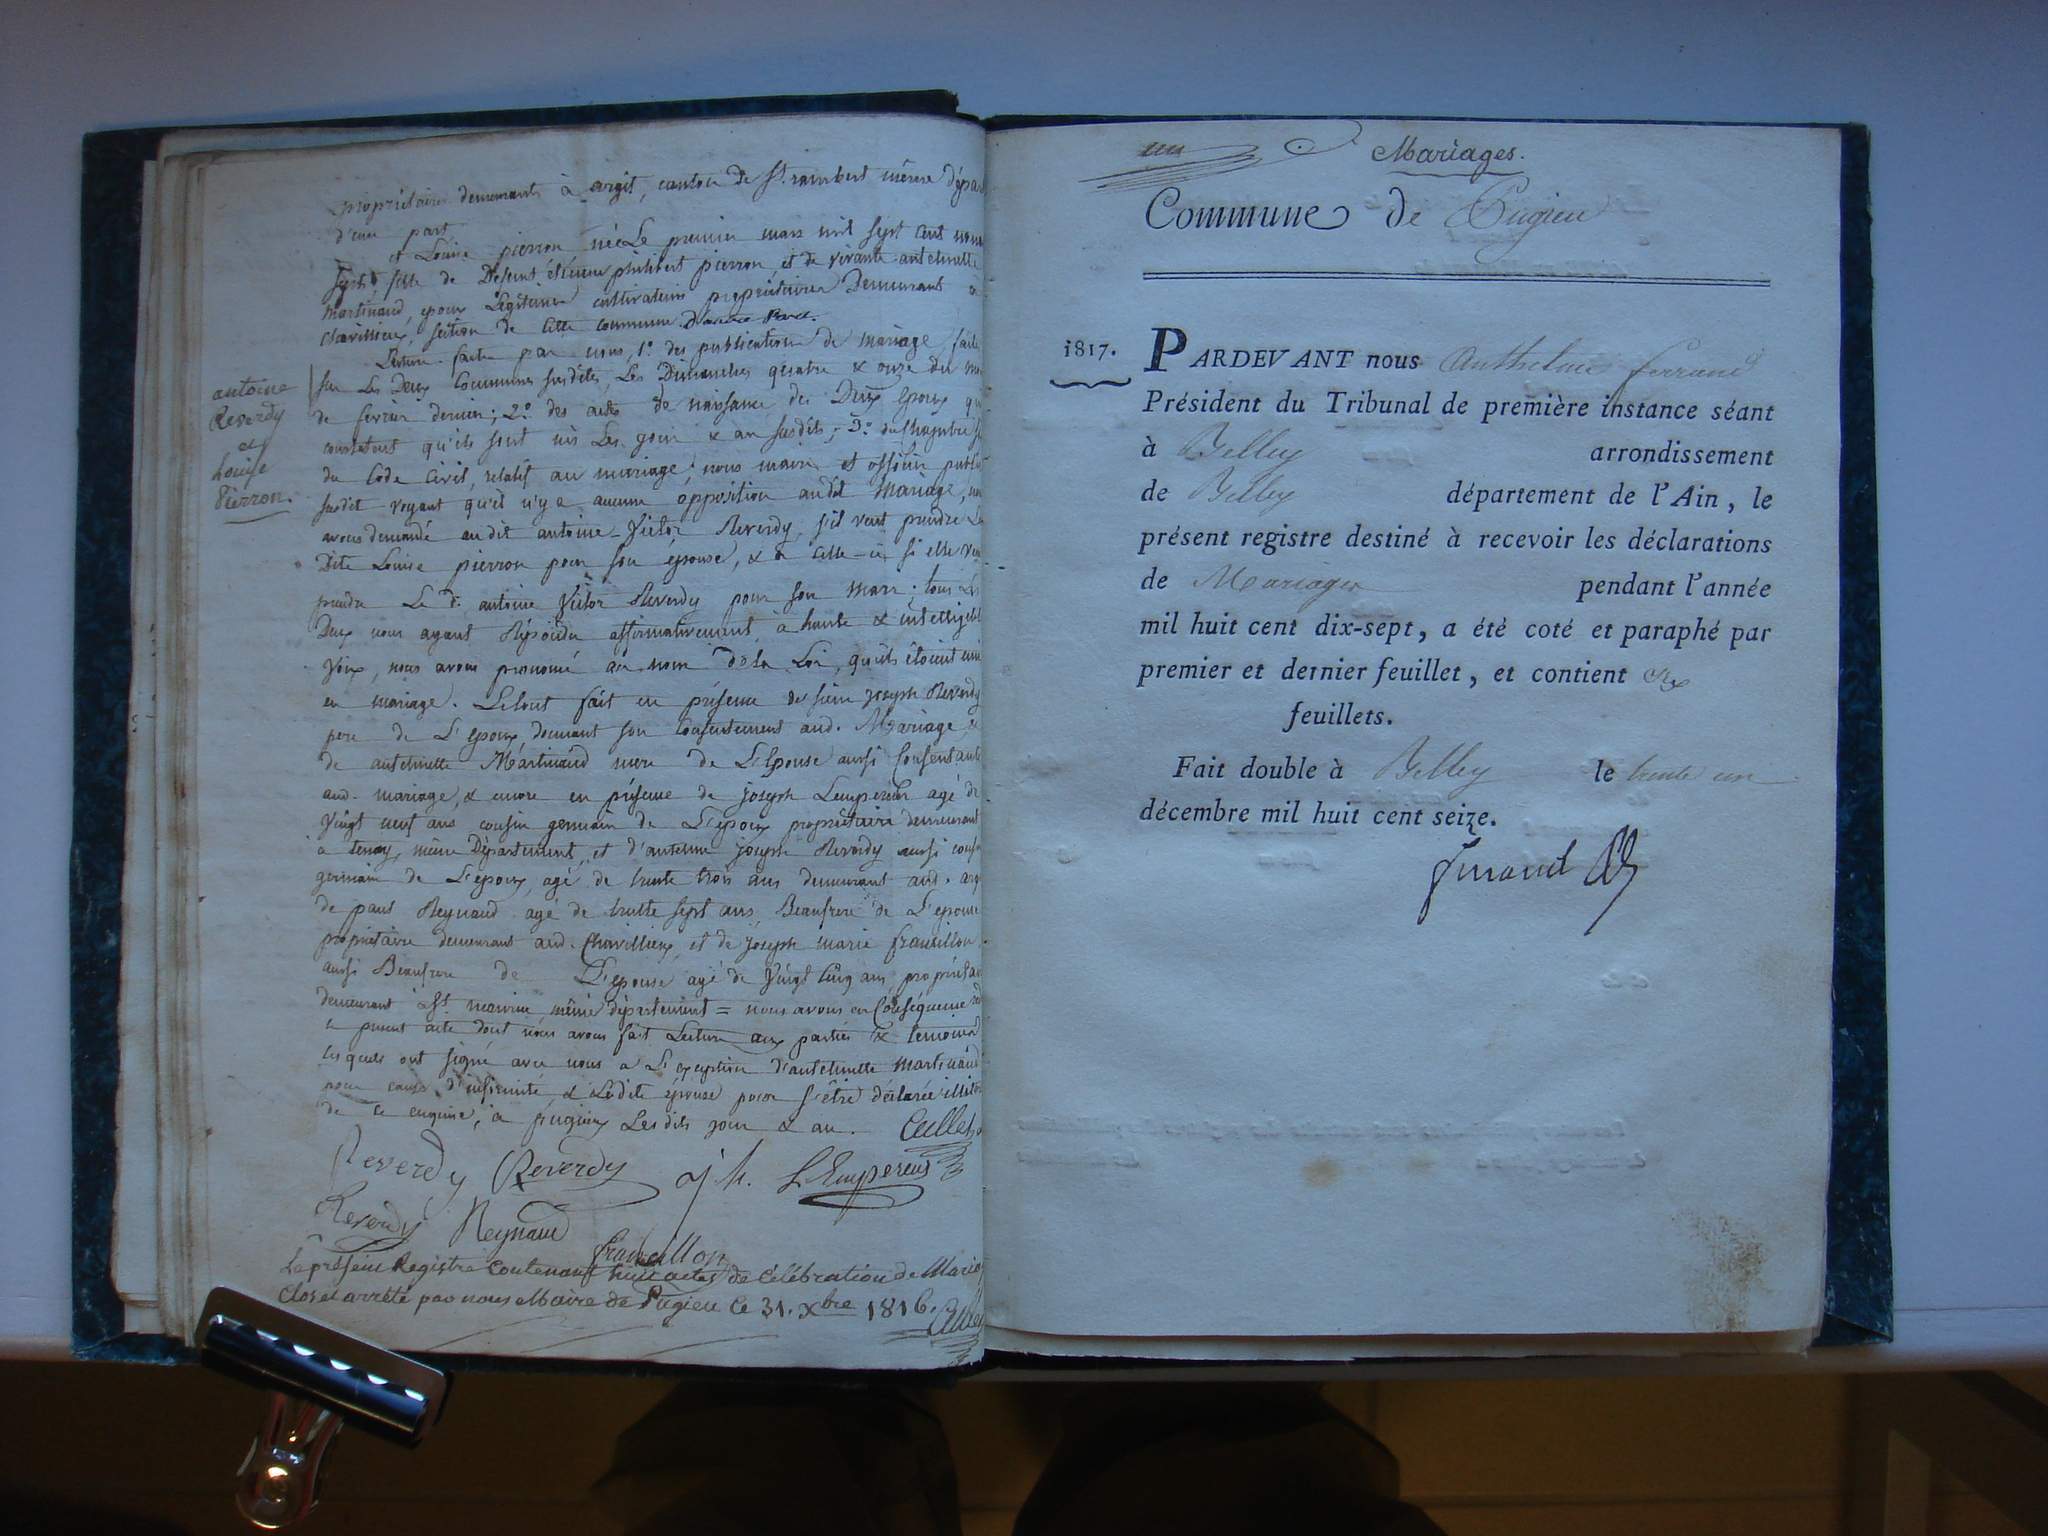 propriétaires demeurants à argit, canton de St. rambert même dépar
d'une part
et Louise pierron née Le premier mars mil sept cent nona
sept, fille de Défunt étienne philibert pierron, et de vivante antelmette
martinaud, epoux Légitimes cultivateurs propriétaires Demeurants a
chavillieux, section de cette commune d'autre Part.
Lecture faite par nous, 1º. des publications de mariage, faites
sur Les Deux Communes susdites, Les Dimanches quatre & onze du mois
de fevrier dernier; 2º. des actes de naissance des Deux epoux qui
constatent qu'ils sont nés Les jour & an susdits; 3º. du Chapitre
du Code Civil, relatif au mariage; nous maire et officier public
susdit voyant qu'il n'y a aucune opposition audit Mariage,
avons demandé audit antoine Victor Reverdy, s'il veut prendre La
Dite Louise pierron pour son épouse, & à celle-ci si elle veut
prendre Le d. antoine Victor Reverdy pour son mari; tous Les
Deux nous ayant Répondu affirmativement à haute & intelligible
Voix, nous avons prononcé au nom de la Loi, qu'ils étoient unis
en mariage. Le tout fait en présence de sieur joseph Reverdy
pere de L'epoux donnant son Consentement aud. Mariage, &
de antelmette Martinaud mere de L'Epouse aussi Consentante
aud. mariage, & encore en présence de joseph Lempereur agé de
Vingt neuf ans cousin germain de L'epoux propriétaire demeurant
à tenay, même Département, et d'antelme joseph Reverdy aussi cousin
germain de L'epoux, agé de trente trois ans demeurant aud. argit
de paul Reynaud agé de trente sept ans, Beaufrere de L'epouse
propriétaire demeurant aud. Chavillieux, et de joseph marie francillon
aussi Beaufrere de L'epouse agé de Vingt cinq ans, propriétaire
demeurant à St. maurice même département = nous avons en Conséquence
le present acte dont nous avons fait Lecture aux parties & temoins
lesquels ont signé avec nous a L'exception d'antelmette martinaud
pour cause d'infirmité, & Ladite épouse pour s'être déclarée illiterée
de ce enquise, à pugieu Les dits jour & an. Cullet
Reverdy Reverdy jh. LEmpereur
Reverdy Reynaud
francillon
Le présent Registre contenant huit actes de célébration de Mariage
clos et arrêté par nous Maire de Pugieu le 31. Xbre 1816. Cullet
antoine
Reverdy
et
Louise
Pierron.
un
Mariages.
Commune de Pugieu
1817.
PARDEVANT nous Anthelme ferrand
Président du Tribunal de première instance séant
à Belley arrondissement
de Belley département de l'Ain, le
présent registre destiné à recevoir les déclarations
de Mariages pendant l'année
mil huit cent dix-sept, a été coté et paraphé par
premier et dernier feuillet, et contient
feuillets.
Fait double à Belley le trente un
décembre mil huit cent seize.
ferrand